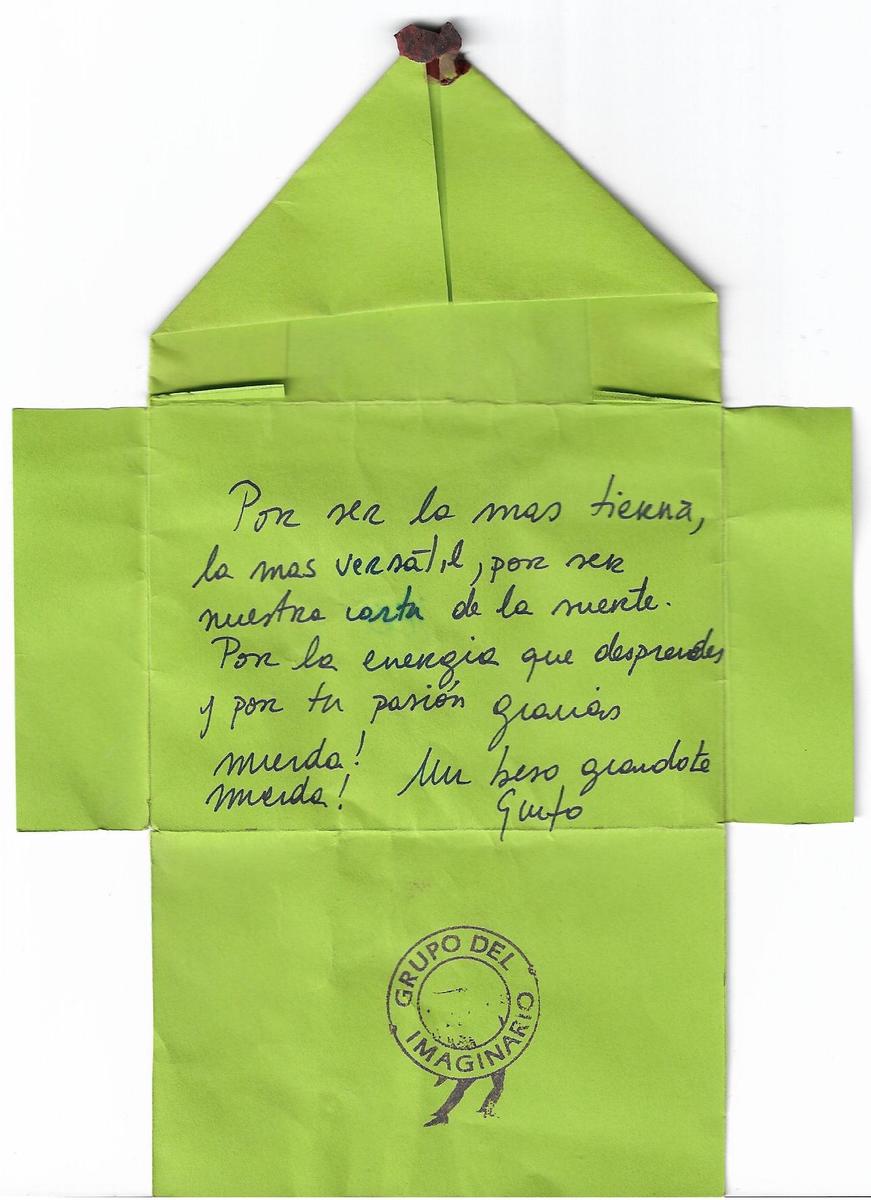 Por ser la mas tierna,
la mas versátil, por ser
nuestra carta de la suerte.
Por la energia que desprendes
y por tu pasión gracias
mierda!
mierda! Un beso grandote
GRUPO DEL
IMAGINARIO